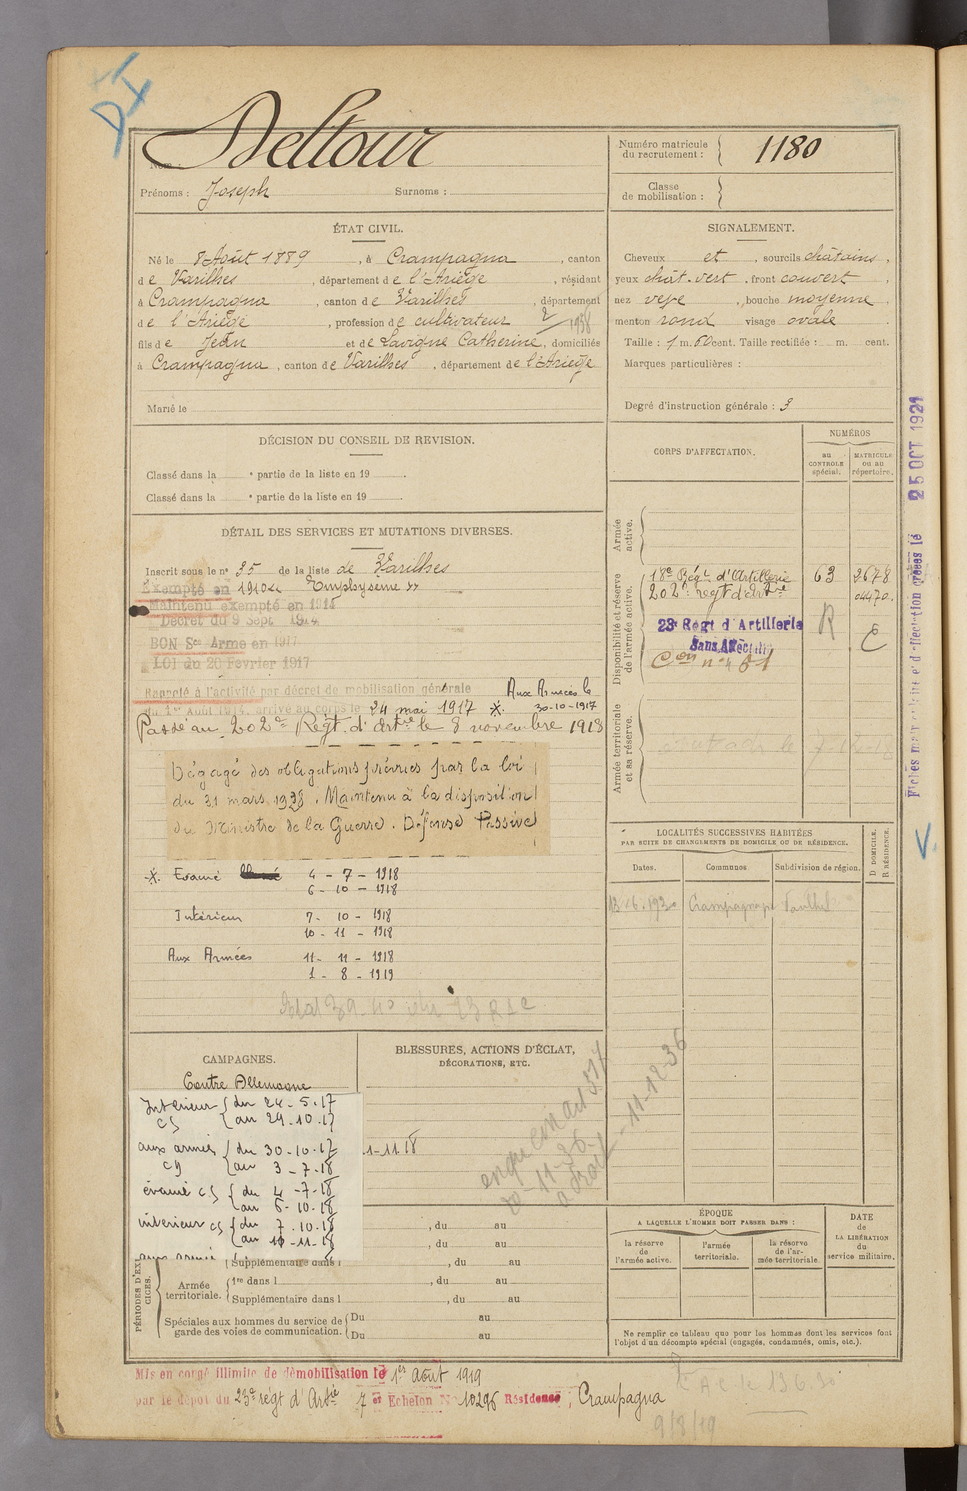 DI
Nom : Deltour
Prénoms : Joseph Surnoms :
Numéro matricule du recrutement : 1180
Classe de mobilisation :
ÉTAT CIVIL.
Né le 8 Août 1889, à Crampagna, canton
de Varilhes, département de l'Ariège, résidant
à Crampagna, canton de Varilhes, département
de l'Ariège, profession de cultivateur
fils de Jean et de Lavigne Catherine, domiciliés
à Crampagna, canton de Varilhes, département de l'Ariège
Marié le
SIGNALEMENT.
Cheveux et, sourcils châtains,
yeux chât. vert, front couvert,
nez, bouche moyenne,
menton rond visage ovale.
Taille : 1 m. 60 cent. Taille rectifiée : m. cent.
Marques particulières :
Degré d'instruction générale : 3
DÉCISION DU CONSEIL DE REVISION.
Classé dans la e partie de la liste en 19 .
Classé dans la e partie de la liste en 19 .
DÉTAIL DES SERVICES ET MUTATIONS DIVERSES.
Inscrit sous le no 35 de la liste de Varilhes
Exempté en 1910 Emphysème
Maintenu exempté en 1914
Décret du 9 Sept 1914
BON Sce Armé en 1917
LOI du 20 Février 1917
Rappelé à l'activité par décret de mobilisation générale Aux Armées le
du 1er Août 1914, arrivé au corps le 24 mai 1917 * 30-10-1917
Passé au 202e Régt. d'Artie le 8 novembre 1918
Dégagé des obligations prévues par la loi
du 31 mars 1928. Maintenu à la disposition
du Ministre de la Guerre. Défense Passive
* Evacué 4 - 7 - 1918
6 - 10 - 1918
Intérieur 7 - 10 - 1918
10 - 11 - 1918
Aux Armées 11 - 11 - 1918
1 - 8 - 1919
CORPS D'AFFECTATION.
NUMÉROS
au CONTROLE spécial.
MATRICULE ou au répertoire.
Armée active.
Disponibilité et réserve de l'armée active.
18e Régt d'Artillerie 63 2678
202e régt d'Artie 04470.
23e Régt d'Artillerie R
Sans Affectation
Armée territoriale et sa réserve.
LOCALITÉS SUCCESSIVES HABITÉES
PAR SUITE DE CHANGEMENTS DE DOMICILE OU DE RÉSIDENCE.
Dates. Communes. Subdivision de région.
D DOMICILE. R RÉSIDENCE.
Crampagna
25 OCT 1921
CAMPAGNES.
Contre Allemagne
Intérieur CS du 24-5-17
au 29-10-17
aux armées CD du 30-10-17
au 3-7-18
évacué CS du 4-7-18
au 6-10-18
intérieur CS du 7-10-18
au 10-11-18
1-11.18
BLESSURES, ACTIONS D'ÉCLAT,
DÉCORATIONS, ETC.
11-12-36
PÉRIODES D'EXERCICES.
, du au
, du au
Supplémentaire dans l , du au
Armée territoriale. 1re dans l , du au
Supplémentaire dans l , du au
Spéciales aux hommes du service de garde des voies de communication. Du au
Du au
ÉPOQUE
A LAQUELLE L'HOMME DOIT PASSER DANS :
la réserve de l'armée active.
l'armée territoriale.
la réserve de l'armée territoriale.
DATE de LA LIBÉRATION du service militaire.
Ne remplir ce tableau que pour les hommes dont les services font
l'objet d'un décompte spécial (engagés, condamnés, omis, etc.).
Mis en congé illimité de démobilisation le 1er août 1919
par le dépôt du 23e régt d'Artie 7e Echelon N° 10296 Résidence : Crampagna
9/8/19